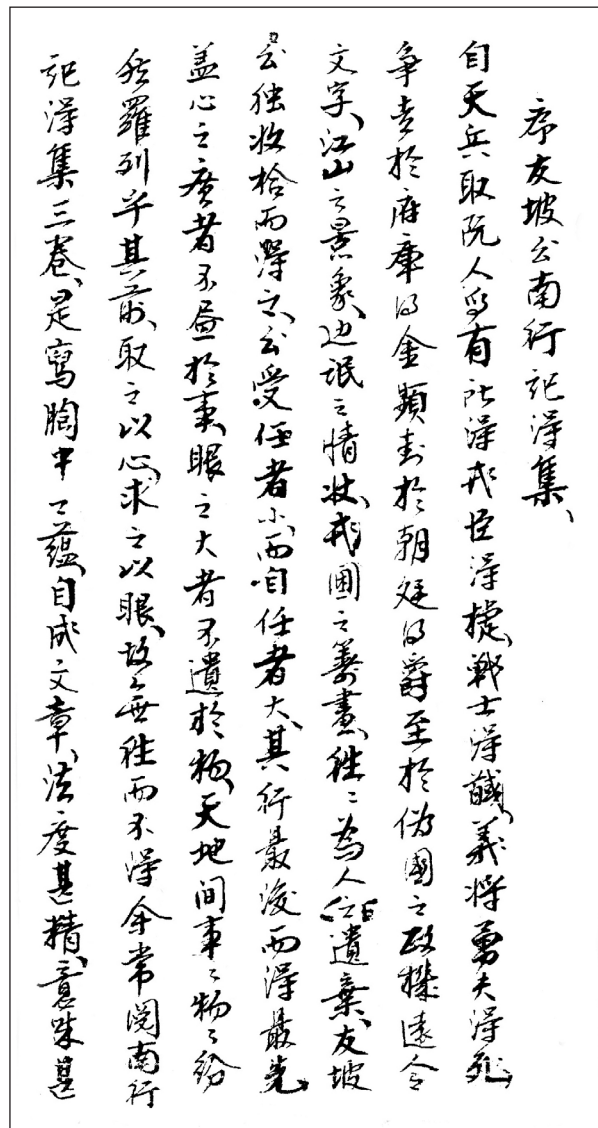 序友坡公南行記得集、
自天兵取阮人爭有所得戎臣得捷、戰士得馘、義將勇夫得死、
争者於府庫得金顯封於朝廷得爵至於偽國之政機遠今
文字、江山之景象、边氓之情状、戎國之籌畫、往〻為人遺棄、友坡
公独收拾而得之、公受任者小、而自任者大、其行最後而得最先、
盖心之廣者不昼於事、眼之大者不遺於物、天地間事〻物〻紛
然羅列乎其前、取之以心、求之以眼、故無往而不得余常閱南行
記得集三卷、是寫胸中之蘊、自成文章、法度甚精、意味甚